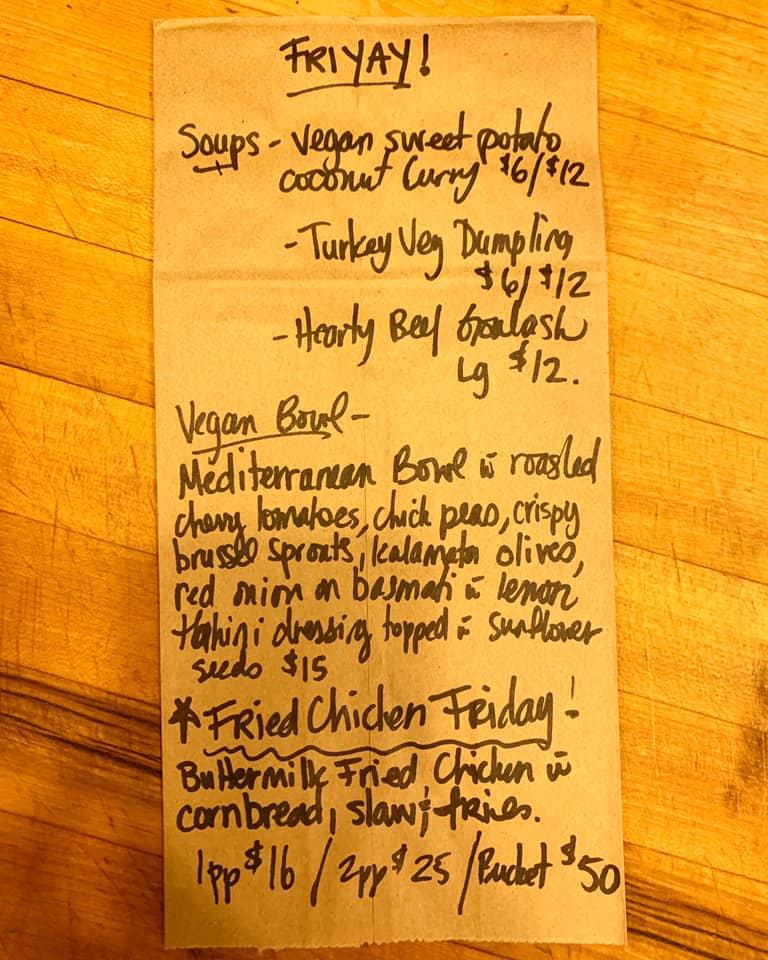 FRIYAY!
Soups - Vegan sweet potato
coconut Curry $6/$12
- Turkey Veg Dumpling
$6/$12
- Hearty Beef Goulash
Lg $12.
Vegan Bowl -
Mediterranean Bowl w roasted
cherry tomatoes, chick peas, crispy
brussel sprouts, kalamata olives,
red onion on basmati w lemon
tahini dressing topped w sunflower
seeds $15
* Fried Chicken Friday!
Buttermilk Fried Chicken w
cornbread, slaw & fries.
1pp $16 / 2pp $25 / Bucket $50